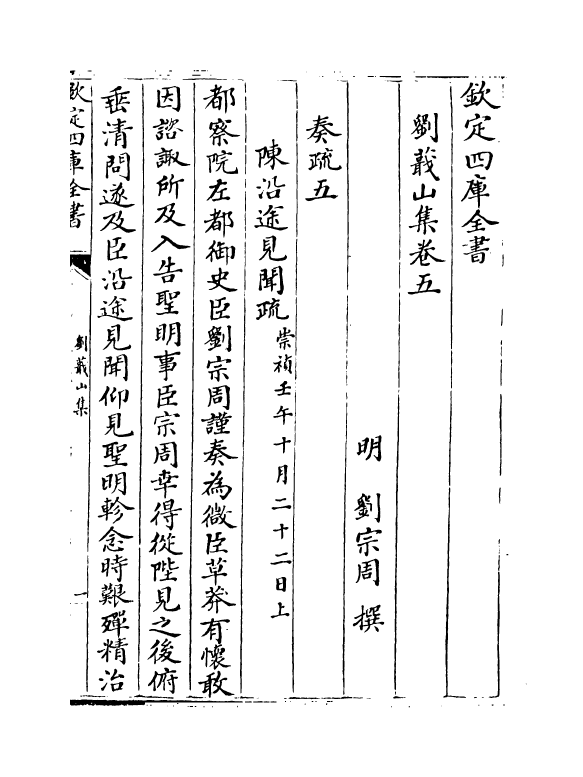 欽定四庫全書
劉蕺山集卷五
明 劉宗周 撰
奏疏五
陳沿途見聞疏崇禎壬午十月二十二日上
都察院左都御史臣劉宗周謹奏為微臣草莽有懷敢
因諮諏所及入告聖明事臣宗周幸得從陛見之後俯
垂清問遂及臣沿途見聞仰見聖明軫念時艱殫精治
欽定四庫全書
劉蕺山集
一